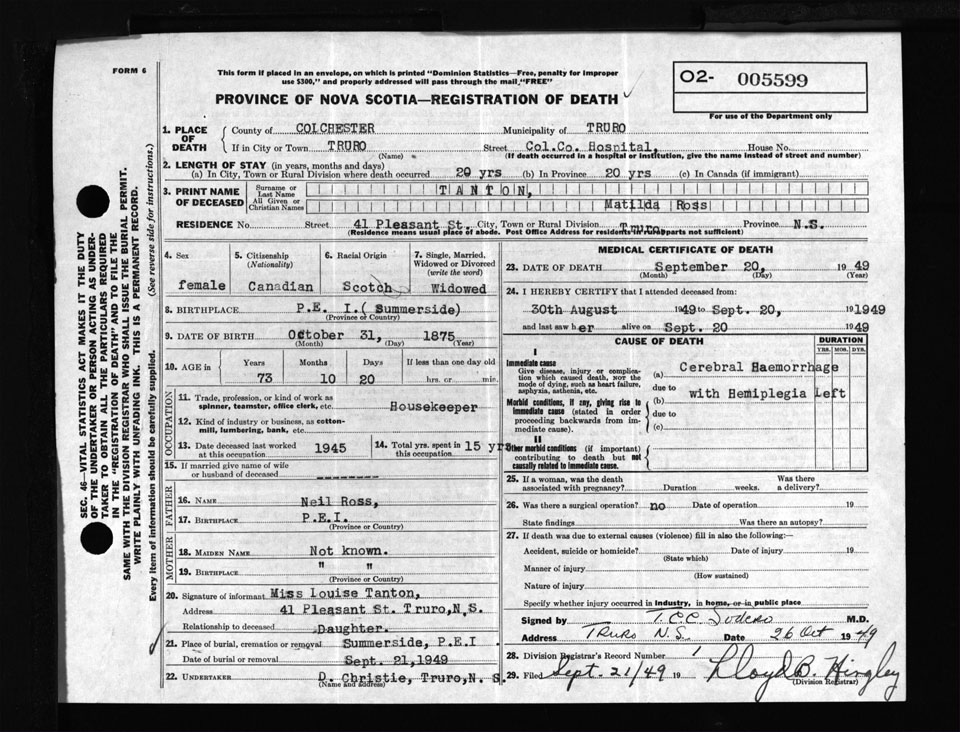 FORM 6
This form if placed in an envelope, on which is printed "Dominion Statistics—Free, penalty for improper
use $300," and properly addressed will pass through the mail "FREE"
O2- 005599
For use of the Department only
PROVINCE OF NOVA SCOTIA—REGISTRATION OF DEATH
SEC. 46—VITAL STATISTICS ACT MAKES IT THE DUTY
OF THE UNDERTAKER OR PERSON ACTING AS UNDER-
TAKER TO OBTAIN ALL THE PARTICULARS REQUIRED
IN THE "REGISTRATION OF DEATH" AND TO FILE THE
SAME WITH THE DIVISION REGISTRAR WHO SHALL ISSUE THE BURIAL PERMIT.
WRITE PLAINLY WITH UNFADING INK. THIS IS A PERMANENT RECORD.
Every item of information should be carefully supplied. (See reverse side for instructions.)
1. PLACE OF DEATH County of COLCHESTER Municipality of TRURO
If in City or Town TRURO Street Col.Co. Hospital, House No.
(Name) (If death occurred in a hospital or institution, give the name instead of street and number)
2. LENGTH OF STAY (in years, months and days)
(a) In City, Town or Rural Division where death occurred 20 yrs (b) In Province 20 yrs (c) In Canada (if immigrant)
3. PRINT NAME OF DECEASED Surname or Last Name TANTON,
All Given or Christian Names Matilda Ross
RESIDENCE No. Street 41 Pleasant St. City, Town or Rural Division Truro Province N.S.
(Residence means usual place of abode. Post Office Address for residents in rural parts not sufficient)
4. Sex 5. Citizenship (Nationality) 6. Racial Origin 7. Single, Married, Widowed or Divorced (write the word)
female Canadian Scotch Widowed
8. BIRTHPLACE P.E. I.( Summerside)
(Province or Country)
9. DATE OF BIRTH October 31, 1875
(Month) (Day) (Year)
10. AGE in Years Months Days If less than one day old
73 10 20 hrs. or min.
OCCUPATION
11. Trade, profession, or kind of work as
spinner, teamster, office clerk, etc. Housekeeper
12. Kind of industry or business, as cotton-
mill, lumbering, bank, etc.
13. Date deceased last worked at this occupation 1945 14. Total yrs. spent in this occupation 15 yrs
15. If married give name of wife
or husband of deceased
FATHER
16. NAME Neil Ross,
17. BIRTHPLACE P.E.I.
(Province or Country)
MOTHER
18. MAIDEN NAME Not known.
19. BIRTHPLACE " "
(Province or Country)
20. Signature of informant Miss Louise Tanton,
Address 41 Pleasant St. Truro,N.S.
Relationship to deceased Daughter.
21. Place of burial, cremation or removal Summerside, P.E.I .
Date of burial or removal Sept. 21,1949
22. UNDERTAKER D. Christie, Truro,N. S
(Name and address)
MEDICAL CERTIFICATE OF DEATH
23. DATE OF DEATH September 20, 1949
(Month) (Day) (Year)
24. I HEREBY CERTIFY that I attended deceased from:
30th August 1949 to Sept. 20, 191949
and last saw her alive on Sept. 20 1949
CAUSE OF DEATH DURATION
YRS. MOS. DYS.
I
Immediate cause
Give disease, injury or complica-
tion which caused death, not the
mode of dying, such as heart failure,
asphyxia, asthenia, etc.
(a) Cerebral Haemorrhage
due to
Morbid conditions, if any, giving rise to
immediate cause (stated in order
proceeding backwards from im-
mediate cause).
(b) with Hemiplegia Left
due to
(c)
II
Other morbid conditions (if important)
contributing to death but not
causally related to immediate cause.
25. If a woman, was the death Was there
associated with pregnancy? Duration weeks. a delivery?
26. Was there a surgical operation? no Date of operation 19
State findings Was there an autopsy?
27. If death was due to external causes (violence) fill in also the following:—
Accident, suicide or homicide? Date of injury 19
(State which)
Manner of injury
(How sustained)
Nature of injury
Specify whether injury occurred in industry, in home, or in public place
Signed by T.C.C. Sodero M.D.
Address Truro N.S. Date 26 Oct 1949
28. Division Registrar's Record Number 1
29. Filed Sept. 21/49 19 Lloyd B. Hingley
(Division Registrar)